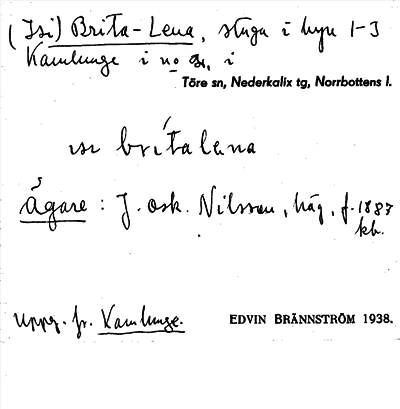 (Isi) Brita-Lena, stuga i byn 1-3
Kamlunge i no sn, i
Töre sn, Nederkalix tg, Norrbottens l.
ısı brítalena
Ägare: J. Osk. Nilsson, häg, f. 1887
kb.
Uppg. fr. Kamlunge.
EDVIN BRÄNNSTRÖM 1938.